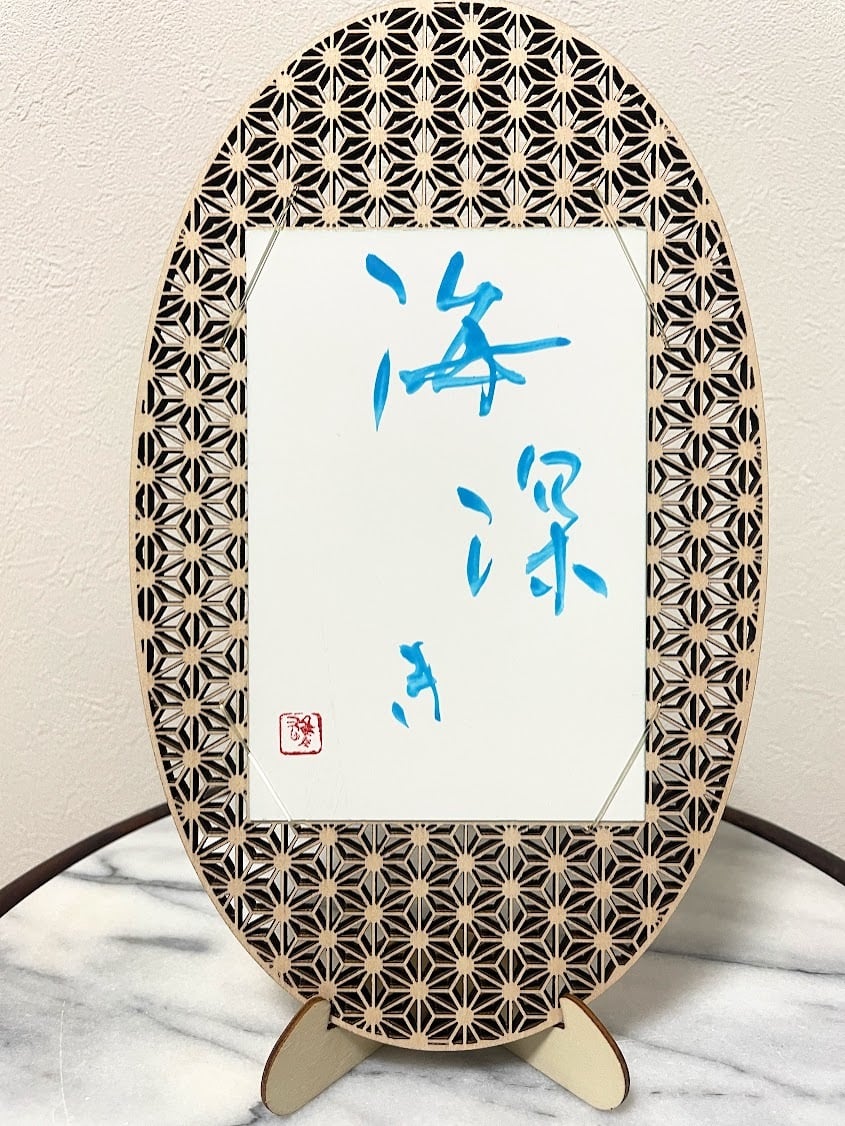 海
深
き